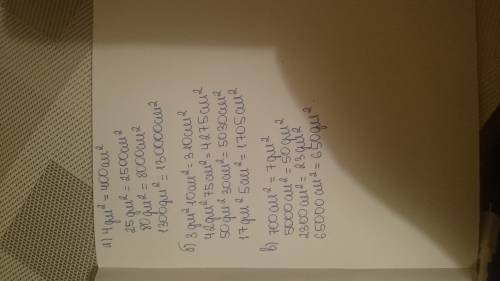 а) 4дм² = 400см²
25дм² = 2500см²
80дм² = 8000см²
1300дм² = 130000см²
б) 3дм² 10см² = 310см²
42дм² 75см² = 4275см²
50дм² 30см² = 5030см²
17дм² 5см² = 1705см²
в) 700см² = 7дм²
5000см² = 50дм²
2300см² = 23дм²
65000см² = 650дм²